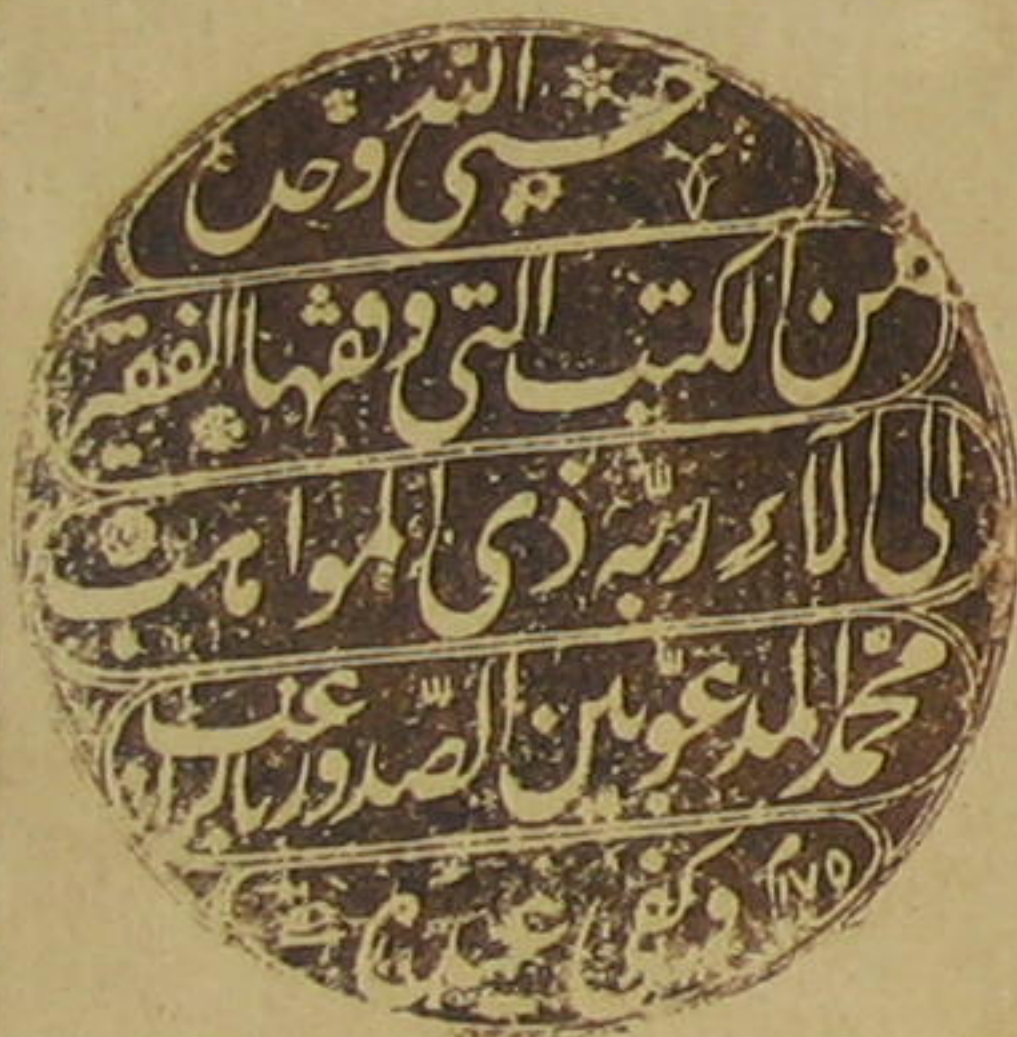 حسبي الله وحده
من الكتب التي وقفها الفقير
الى آلاء ربّه ذي المواهب
محمّد المدعوّ بين الصّدور بالراغب
١١٧٥